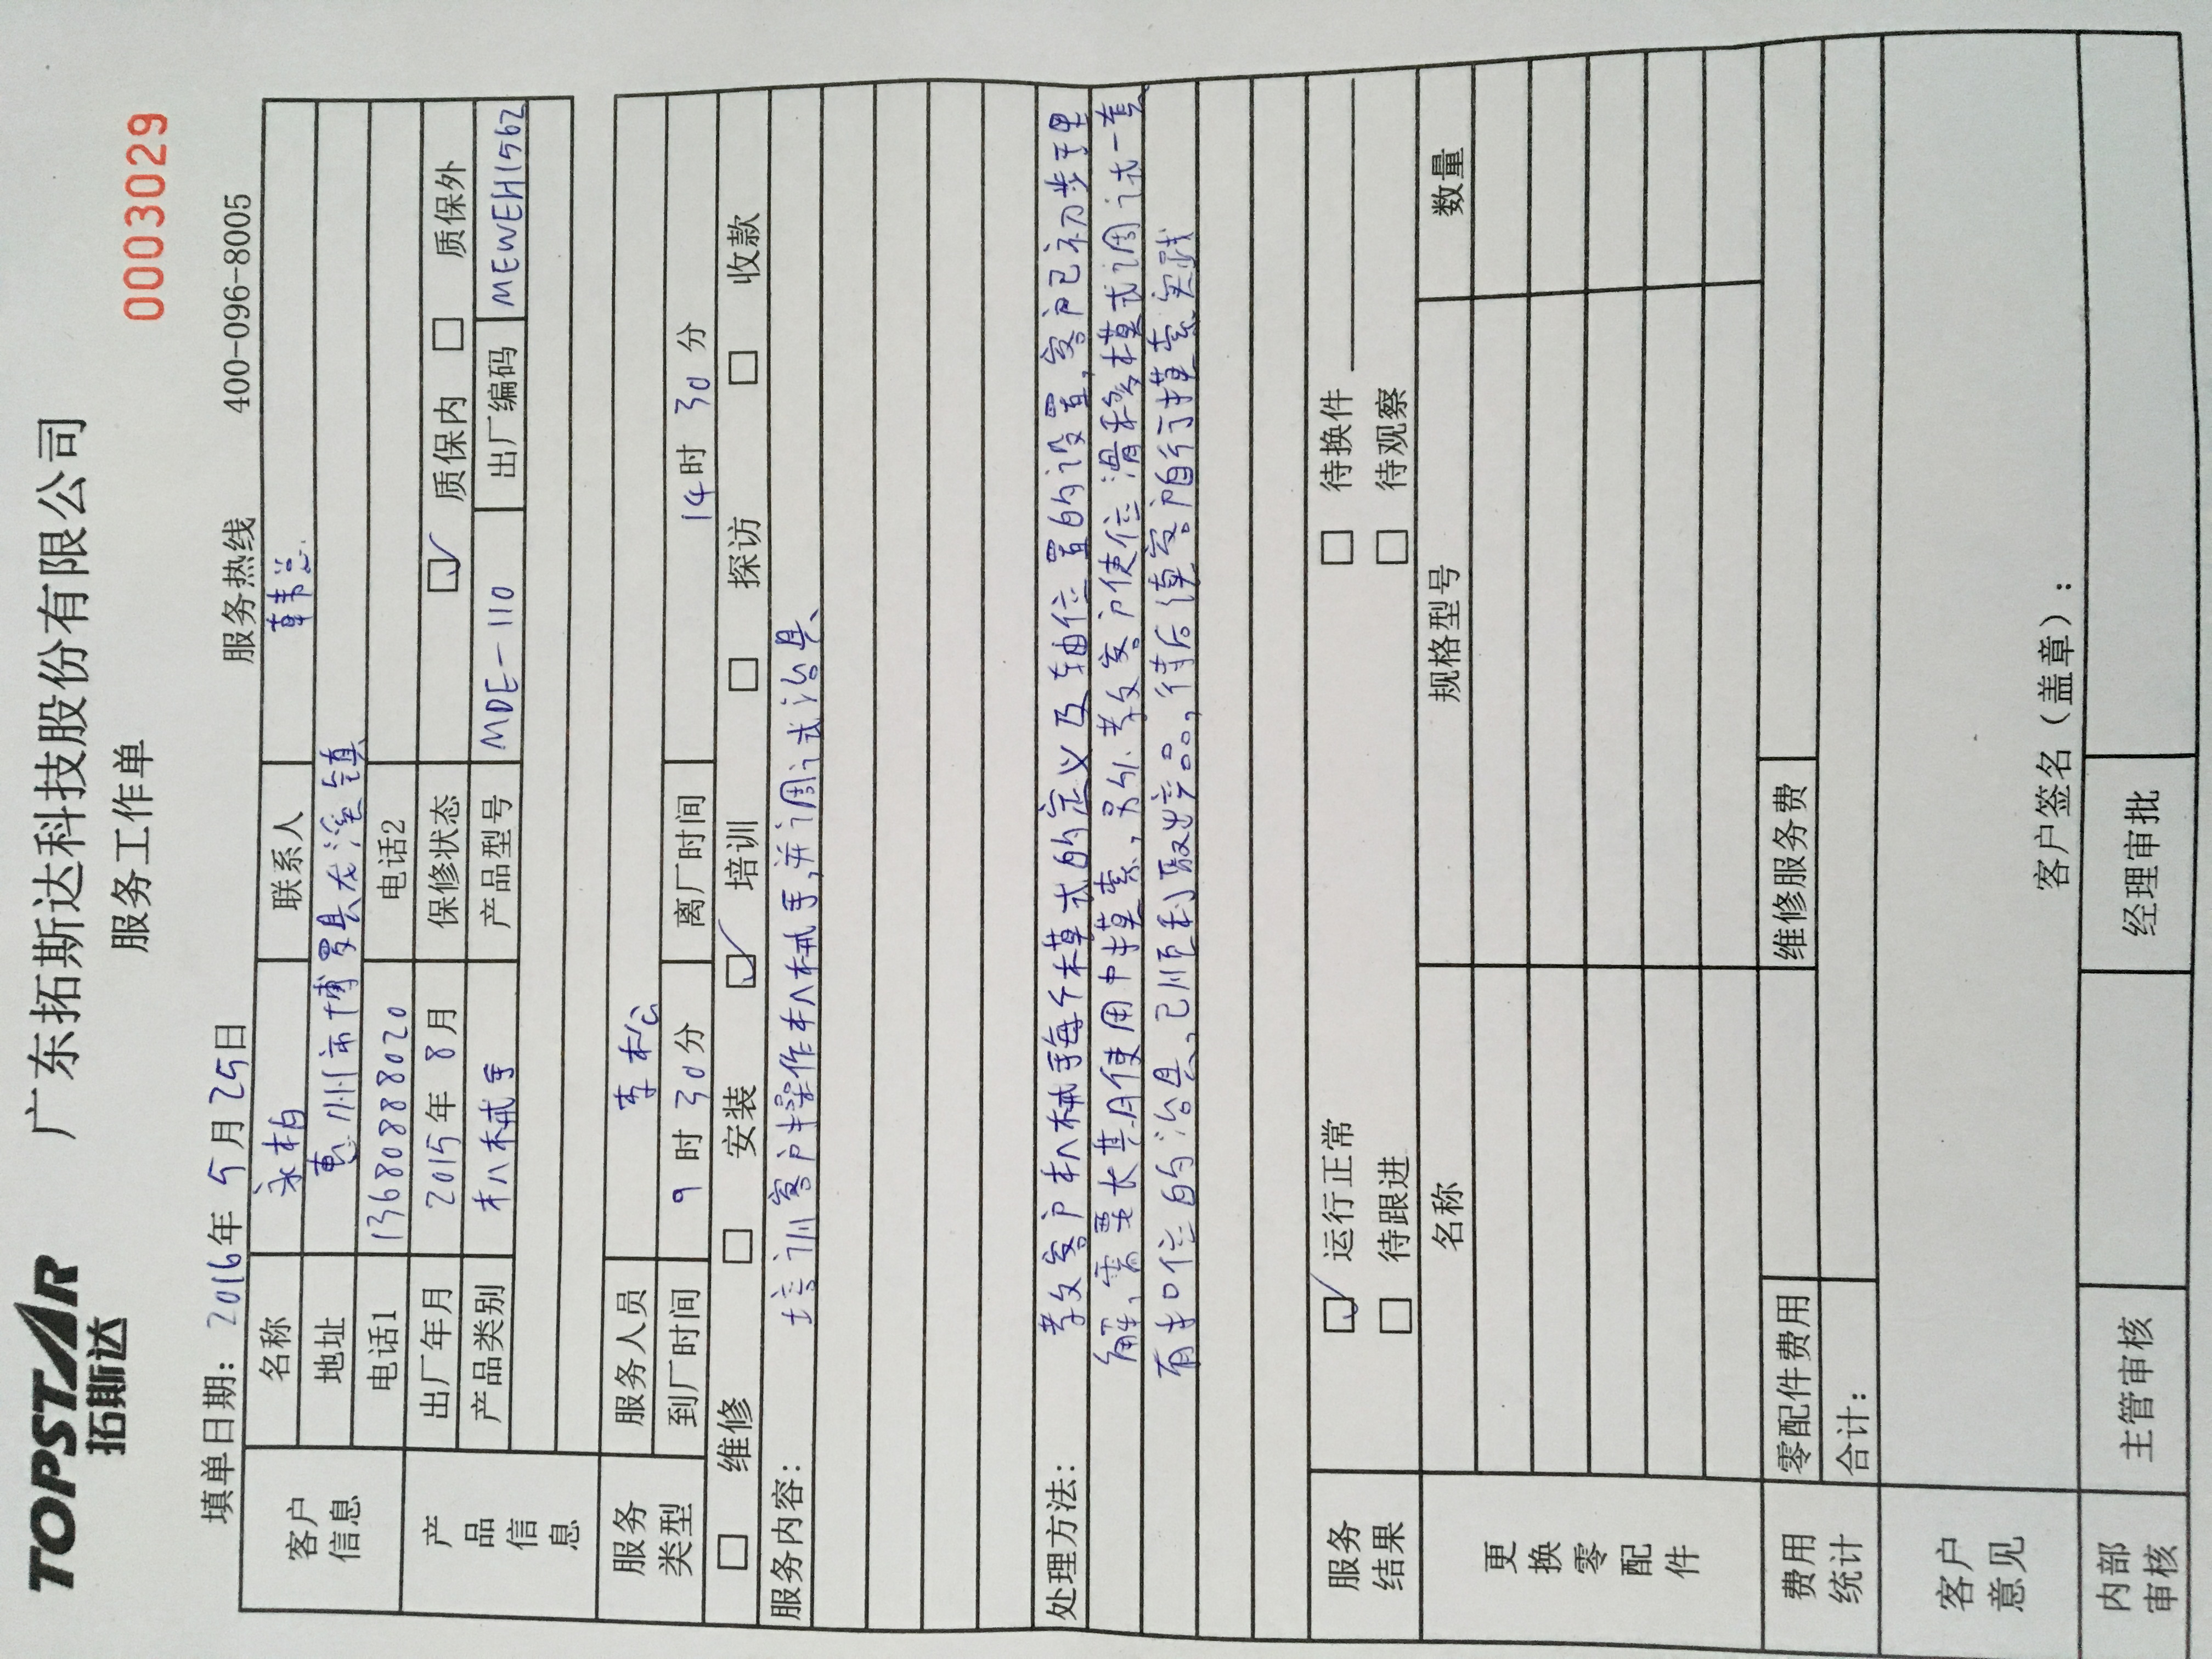 TOPSTAR
拓斯达
广东拓斯达科技股份有限公司
服务工作单
0003029
填单日期: 2016年 5月 25日 服务热线 400-096-8005
客户信息 名称 永柏 联系人
地址 惠州市博罗县龙溪镇
电话1 13680888020 电话2
产品信息 出厂年月 2015年 8月 保修状态 ☑ 质保内 □ 质保外
产品类别 机械手 产品型号 MDE-110 出厂编码 MEWEH1562
服务类型 服务人员 李松
到厂时间 9时 30分 离厂时间 14时 30分
□ 维修 □ 安装 ☑ 培训 □ 探访 □ 收款
服务内容: 培训客户操作机械手,并调试治具、
处理方法: 教客户机械手每个模式的定义及轴位置的设置,客户已初步了理
解、需要长期使用中摸索,另外、教客户使位滑移模式调试一套
有扣位的治具,已顺利取出产品,待后续客户自行摸索实践
服务结果 ☑ 运行正常 □ 待换件
□ 待跟进 □ 待观察
更换零配件 名称 规格型号 数量
费用统计 零配件费用 维修服务费
合计:
客户意见
客户签名(盖章):
内部审核 主管审核 经理审批